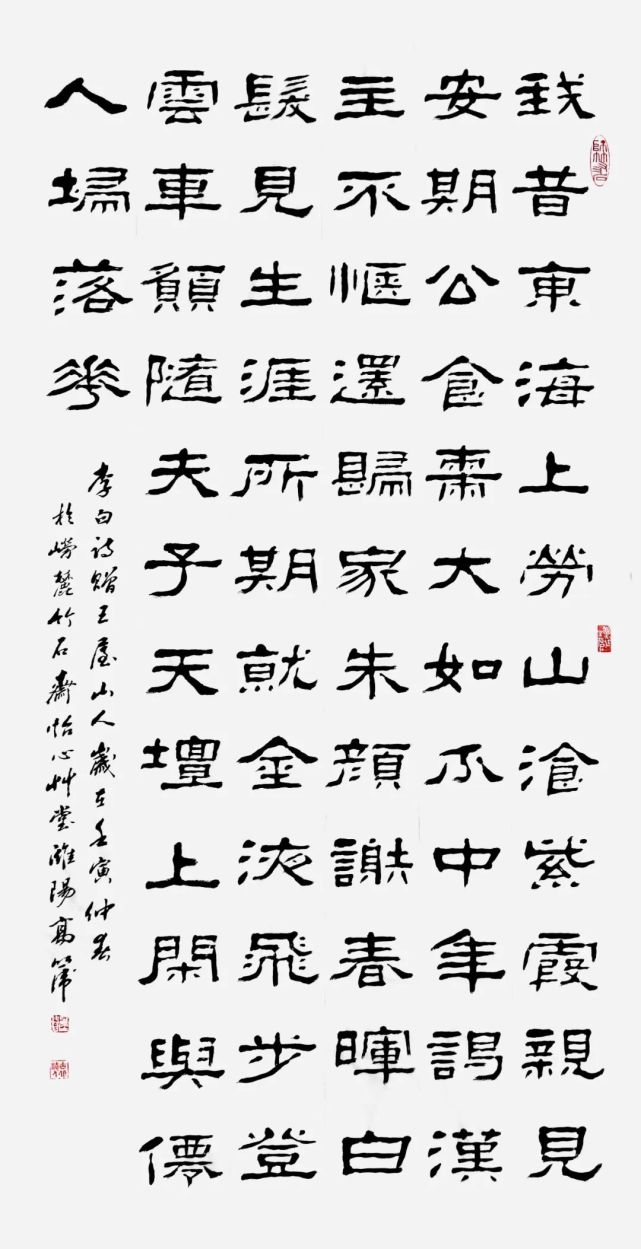 我昔東海上勞山湌紫霞親見
安期公食棗大如瓜中年謁漢
主不愜還歸家朱顏謝春暉白
髮見生涯所期就金液飛步登
雲車願隨夫子天壇上閑與僊
人埽落花
李白詩贈王屋山人歲在壬寅仲春
於嶗麓竹石齋怡心艸堂濰陽高